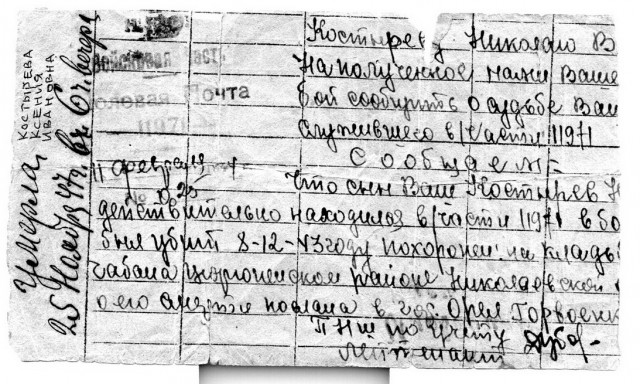 Умерла,
КОСТЫРЕВА
КСЕНИЯ
ИВАНОВНА
25 Ноября 47г. в 6 ч. вечера
Полевая Почта
11971
11 февраля
№ 025
Костыреву Николаю В
На полученное нами Ваше
бой сообщить о судьбе Ваш
служившего в части 11971
Сообщаем:
Что сын Ваш Костырев Н
действительно находился в части 11971 в бо
был убит 8-12-43 году похоронен на кладб
районе Николаевской
о его смерти послана в гор. Орел Горвоенк
ПНШ по учету
Лейтенант